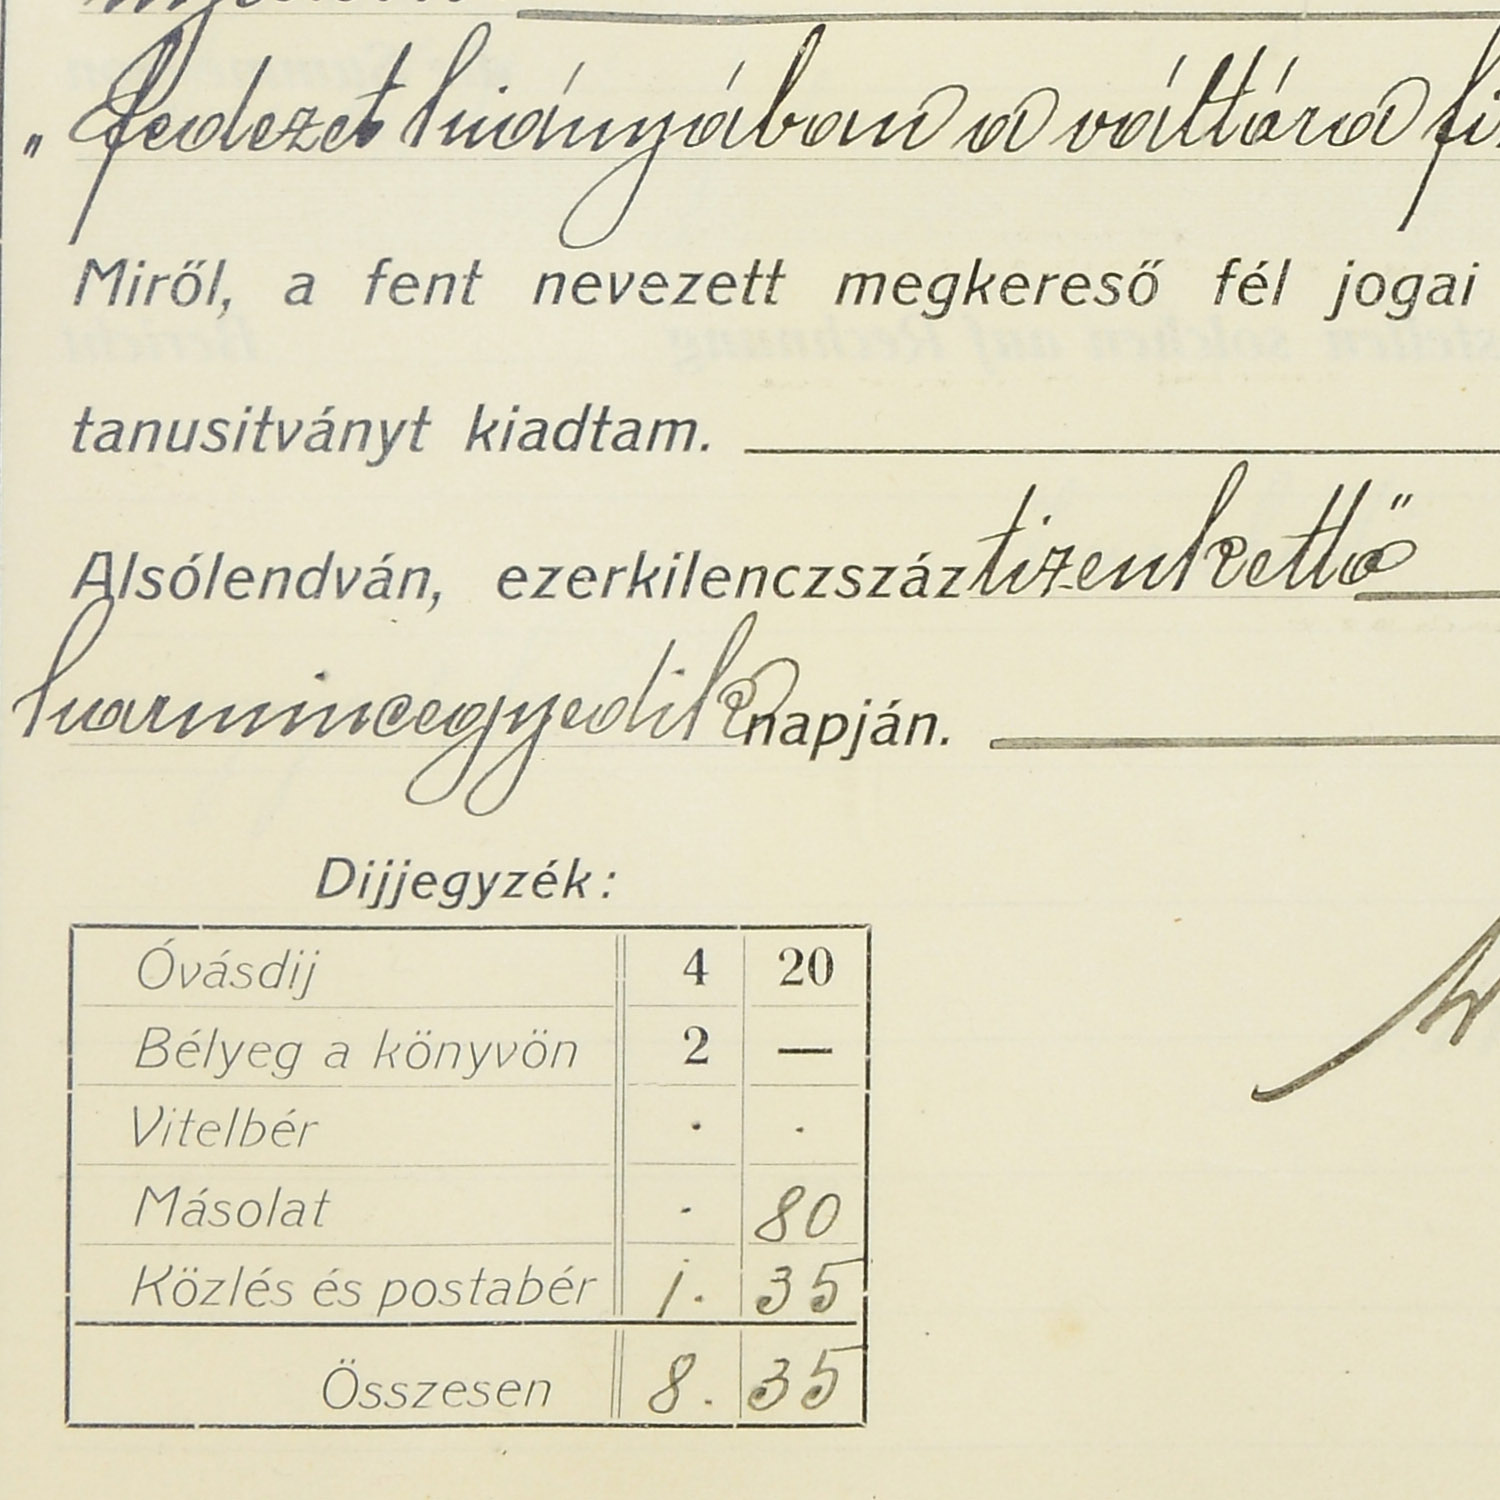 „fedezet hiányában a váltóra
Miről, a fent nevezett megkereső fél jogai
tanusitványt kiadtam.
Alsólendván, ezerkilenczszáztizenkettő
harmincegyedik napján.
Dijjegyzék:
Óvásdij 4 20
Bélyeg a könyvön 2 —
Vitelbér . .
Másolat . 80
Közlés és postabér 1. 35
Összesen 8. 35